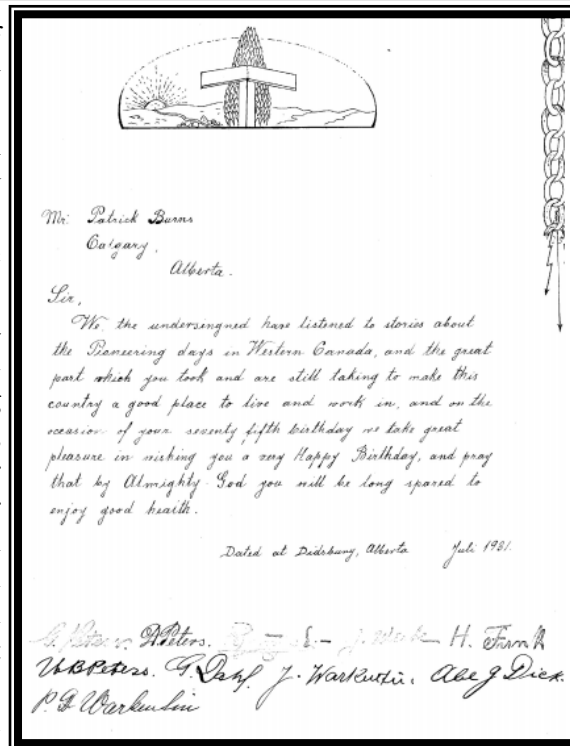 Mr. Patrick Burns
Calgary,
Alberta.
Sir,
We, the undersingned have listened to stories about
the Pioneering days in Western Canada, and the great
part which you took and are still taking to make this
country a good place to live and work in, and on the
occasion of your seventy fifth birthday we take great
pleasure in wishing you a very Happy Birthday, and pray
that by Almighty God you will be long spared to
enjoy good health.
Dated at Didsbury, Alberta Juli 1931.
G. Peters. D. Peters. H. Funk
Peters. J. Warkentin. Abe J Dick.
Warkentin